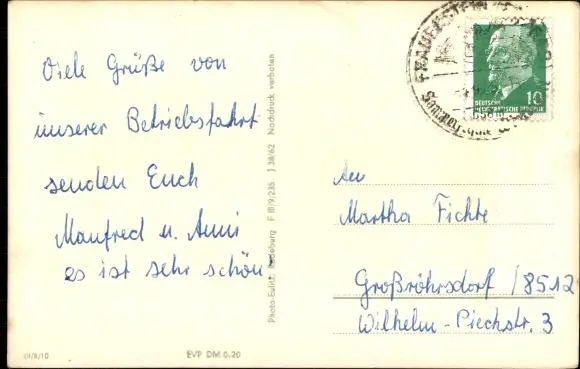 Viele Grüße von
unserer Betriebsfahrt
senden Euch
Manfred u. Anni
es ist sehr schön
Photo-Eulitz, Radeburg F III/9/235 J 38/62 Nachdruck verboten
III/8/10
EVP DM 0.20
FRAUENSTEIN
10
DEUTSCHE
DEMOKRATISCHE REPUBLIK
An
Martha Fichte
Großröhrsdorf / 8512
Wilhelm-Pieckstr. 3